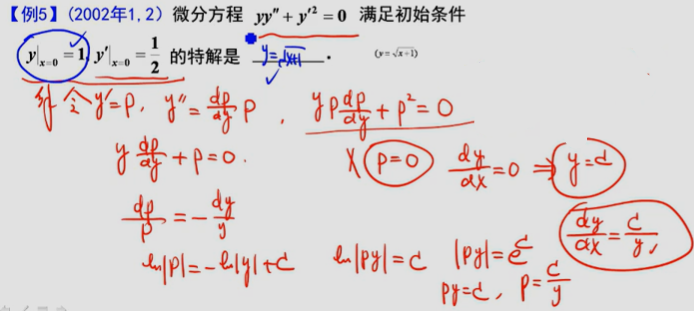 【例5】(2002年1,2) 微分方程 yy″ + y′² = 0 满足初始条件
y|ₓ₌₀ = 1, y′|ₓ₌₀ = 1/2 的特解是 y = √(x+1) . (y = √(x+1))
令 y′=p, y″ = dp/dy p , y p dp/dy + p² = 0
y dp/dy + p = 0 . X p=0 dy/dx = 0 ⇒ y = C
dp/p = - dy/y dy/dx = C/y,
ln|p| = -ln|y| + C ln|py| = C |py| = e^C
py = C, p = C/y